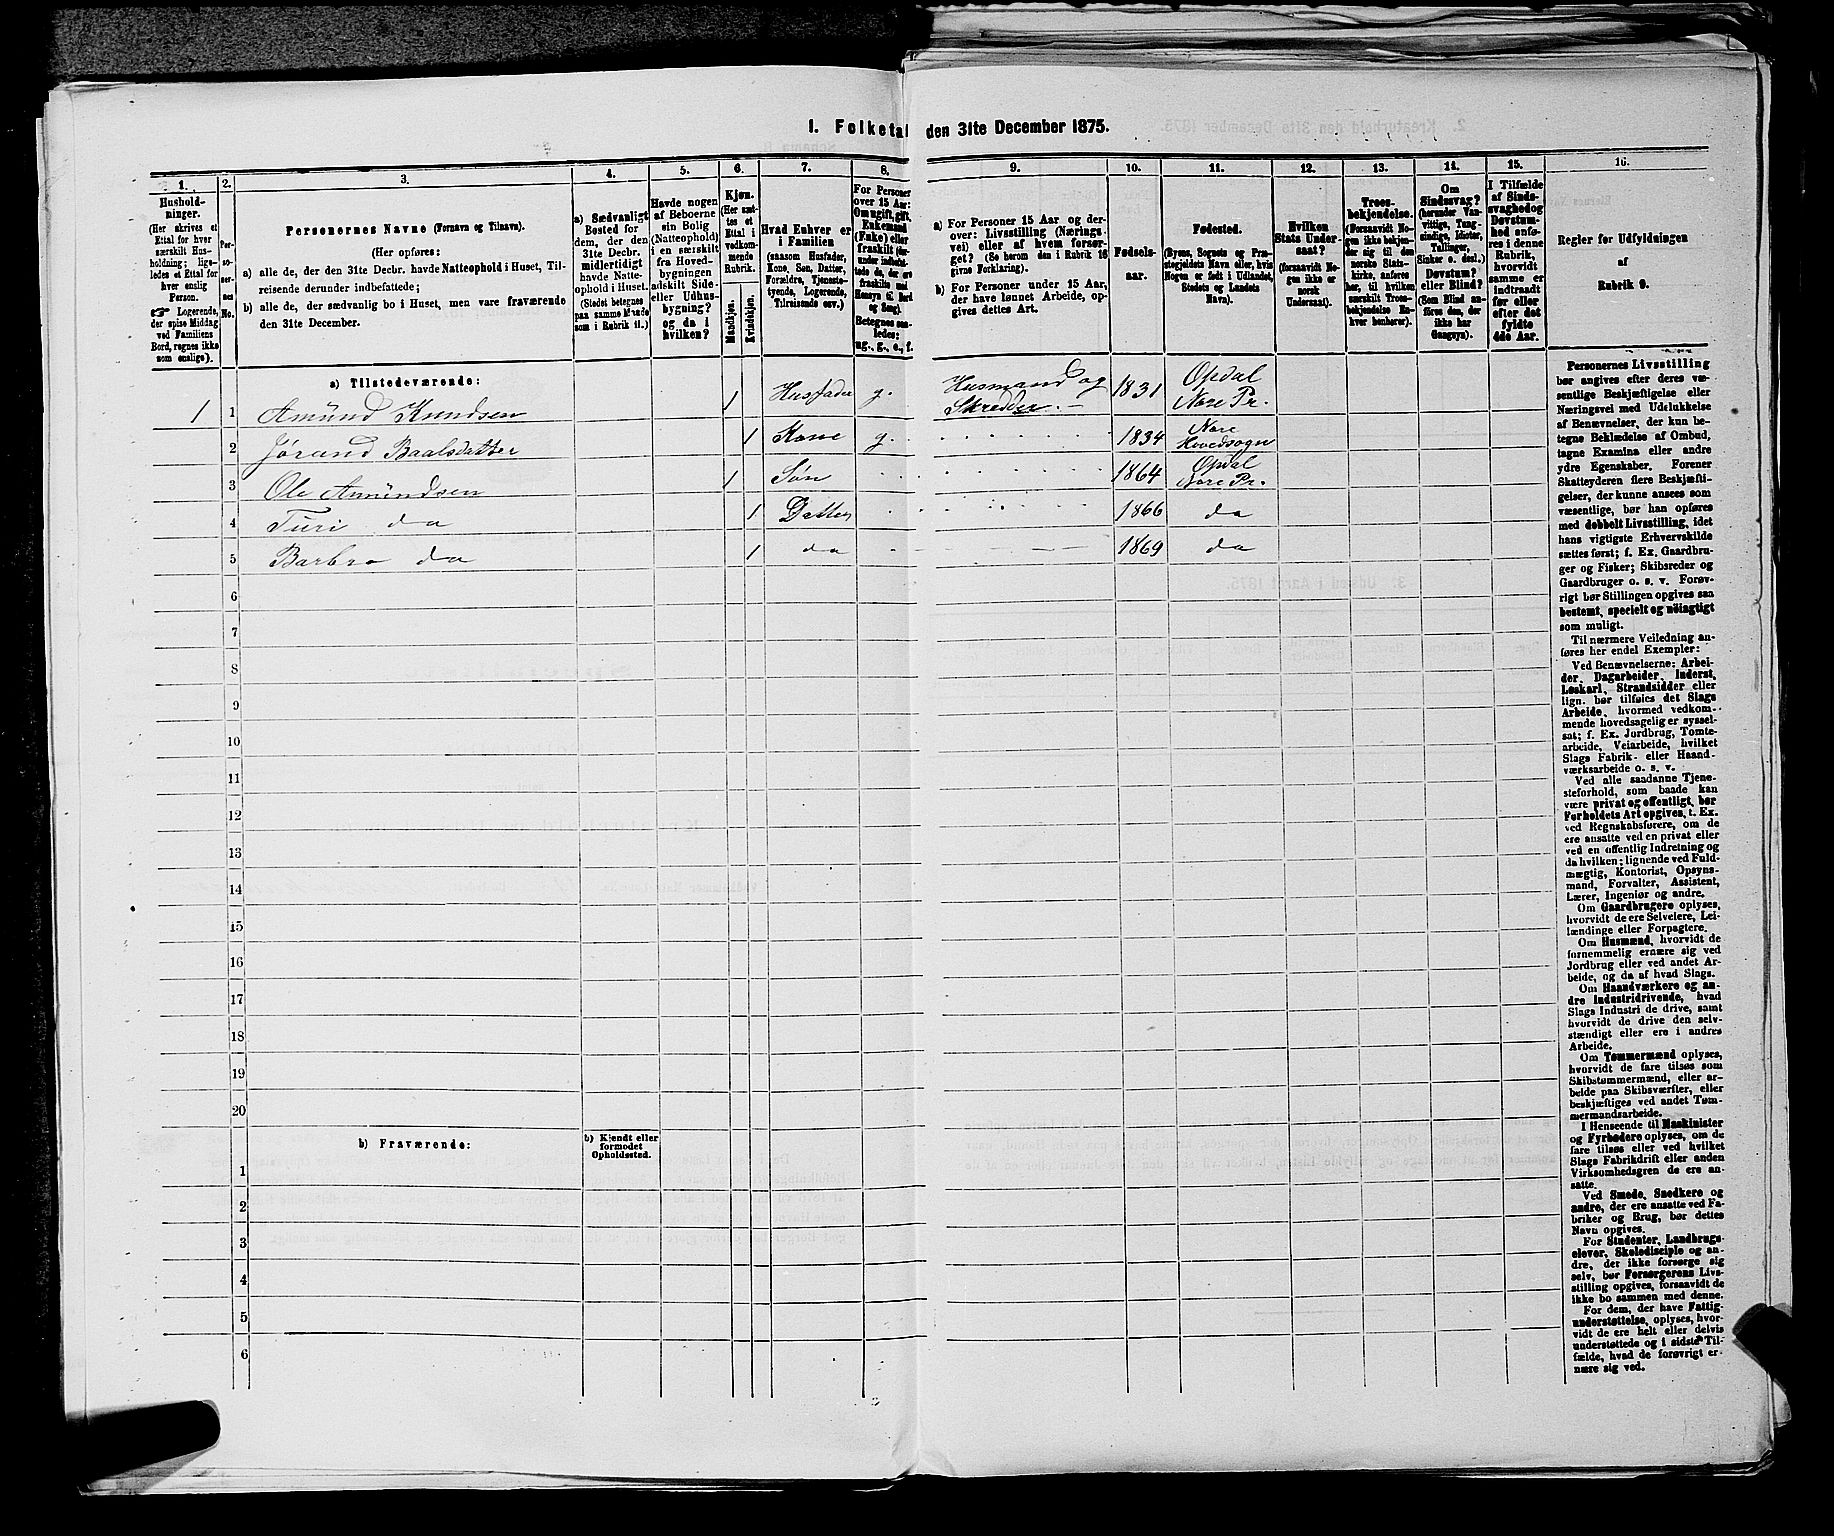 1. Folketal den 31te December 1875.
1. 2. 3. 4. 5. 6. 7. 8. 9. 10. 11. 12. 13. 14. 15. 16.
Husholdninger.
(Her skrives et
Ettal for hver
særskilt Husholdning;
ligeledes et Ettal for
hver enslig
Person.
☛ Logerende,
der spise Middag
ved Familiens
Bord, regnes ikke
som enslige).
Personernes No.
Personernes Navne (Fornavn og Tilnavn).
(Her opføres:
a) alle de, der den 31te Decbr. havde Natteophold i Huset, Tilreisende derunder indbefattede;
b) alle de, der sædvanlig bo i Huset, men vare fraværende
den 31te December.
a) Sædvanligt
Bosted for
dem, der den
31te Decbr.
midlertidigt
havde Natteophold i Huset.
(Stedet betegnes
paa samme Maade
som i Rubrik 11.)
Havde nogen
af Beboerne
sin Bolig
(Natteophold)
i en særskilt
fra Hovedbygningen
adskilt Side- eller Udhusbygning?
og da i
hvilken?
Kjøn.
(Her sættes et
Ettal i
vedkommende
Rubrik.
Mandkjøn.
Kvindekjøn.
Hvad Enhver er
i Familien
(saasom Husfader,
Kone, Søn, Datter,
Forældre, Tjenestetyende, Logerende,
Tilreisende osv.)
For Personer
over 15 Aar:
Om ugift, gift,
Enkemand
(Enke) eller
fraskilt
Betegnes saaledes:
ug., g., e., f.
a) For Personer 15 Aar og derover: Livsstilling (Næringsvei) eller af hvem forsørget? (Se herom den i Rubrik 16
givne Forklaring).
b) For Personer under 15 Aar,
der have lønnet Arbeide, opgives dettes Art.
Fødselsaar.
Fødested.
(Byens, Sognets og Præstegjeldets Navn eller, hvis
Nogen er født i Udlandet,
Stedets og Landets
Navn).
Hvilken
Stats Undersaat?
(forsaavidt Nogen ikke er
norsk
Undersaat).
Troesbekjendelse.
(Forsaavidt Nogen ikke bekjender sig til den
norske Statskirke, anføres
her, til hvilken
særskilt Troesbekjendelse Enhver henhører).
Om
Sindssvag?
(herunder Vanvittige, Tungsindige, Idioter,
Tullinger,
Sinker o. desl.)
Døvstum?
eller Blind?
(Som Blind anføres den, der
ikke har
Gangsyn).
I Tilfælde
af Sindssvaghed og
Døvstumhed anføres i denne
Rubrik,
hvorvidt
samme er
indtraadt
før eller
efter det
fyldte
4de Aar.
Regler for Udfyldningen
af
Rubrik 9.
a) Tilstedeværende:
1 1 Amund Knudsen 1 Husfader g. Husmand og Skredder. 1831 Opdal Nore Pr.
2 Jørand Baalsdatter 1 Kone g. 1834 Nore Hovedsogn
3 Ole Amundsen 1 Søn 1864 Opdal Nore Pr.
4 Turi do 1 Datter 1866 do
5 Barbro do 1 do 1869 do
6
7
8
9
10
11
12
13
14
15
16
17
18
19
20
b) Fraværende:
b) Kjendt eller
formodet
Opholdssted.
1
2
3
4
5
6
Personernes Livsstilling
bør angives efter deres væsentlige Beskjæftigelse eller
Næringsvei med Udelukkelse
af Benævnelser, der kun betegne Beklædelse af Ombud,
tagne Examina eller andre
ydre Egenskaber. Forener
Skatteyderen flere Beskjæftigelser, der kunne ansees som
væsentlige, bør han opføres
med dobbelt Livsstilling, idet
hans vigtigste Erhvervskilde
sættes først; f. Ex. Gaardbruger og Fisker; Skibsreder og
Gaardbruger o. s. v. Forøvrigt bør Stillingen opgives saa
bestemt, specielt og nøiagtigt
som muligt.
Til nærmere Veiledning anføres her endel Exempler:
Ved Benævnelserne: Arbeider, Dagarbeider, Inderst,
Løskarl, Strandsidder eller
lign. bør tilføies det Slags
Arbeide, hvormed vedkommende hovedsagelig er sysselsat; f. Ex. Jordbrug, Tomtearbeide, Veiarbeide, hvilket
Slags Fabrik- eller Haandværksarbeide o. s. v.
Ved alle saadanne Tjenesteforhold, som baade kan
være privat og offentligt, bør
Forholdets Art opgives, f. Ex.
ved Regnskabsførere, om de
ere ansatte ved en privat eller
ved en offentlig Indretning og
da hvilken; lignende ved Fuldmægtig, Kontorist, Opsynsmand, Forvalter, Assistent,
Lærer, Ingeniør og andre.
Om Gaardbrugere oplyses,
hvorvidt de ere Selveiere, Leilændinge eller Forpagtere.
Om Husmænd, hvorvidt de
fornemmelig ernære sig ved
Jordbrug eller ved andet Arbeide, og da af hvad Slags.
Om Haandværkere og andre Industridrivende, hvad
Slags Industri de drive, samt
hvorvidt de drive den selvstændigt eller ere i andres
Arbeide.
Om Tømmermænd oplyses,
hvorvidt de fare tilsøs som
Skibstømmermænd, eller arbeide paa Skibsværfter, eller
beskjæftiges ved andet Tømmermandsarbeide.
I Henseende til Maskinister
og Fyrbødere oplyses, om de
fare tilsøs eller ved hvilket
Slags Fabrikdrift eller anden
Virksomhedsgren de ere ansatte.
Ved Smede, Snedkere og
andre, der ere ansatte ved Fabriker og Brug, bør dettes
Navn opgives.
For Studenter, Landbrugselever, Skoledisciple og andre, der ikke forsørge sig
selv, bør Forsørgerens Livsstilling opgives, forsaavidt de
ikke bo sammen med denne.
For dem, der have Fattigunderstøttelse, oplyses, hvorvidt de ere helt eller delvis
understøttede og i sidste Tilfælde, hvad de forøvrigt ernære sig ved.